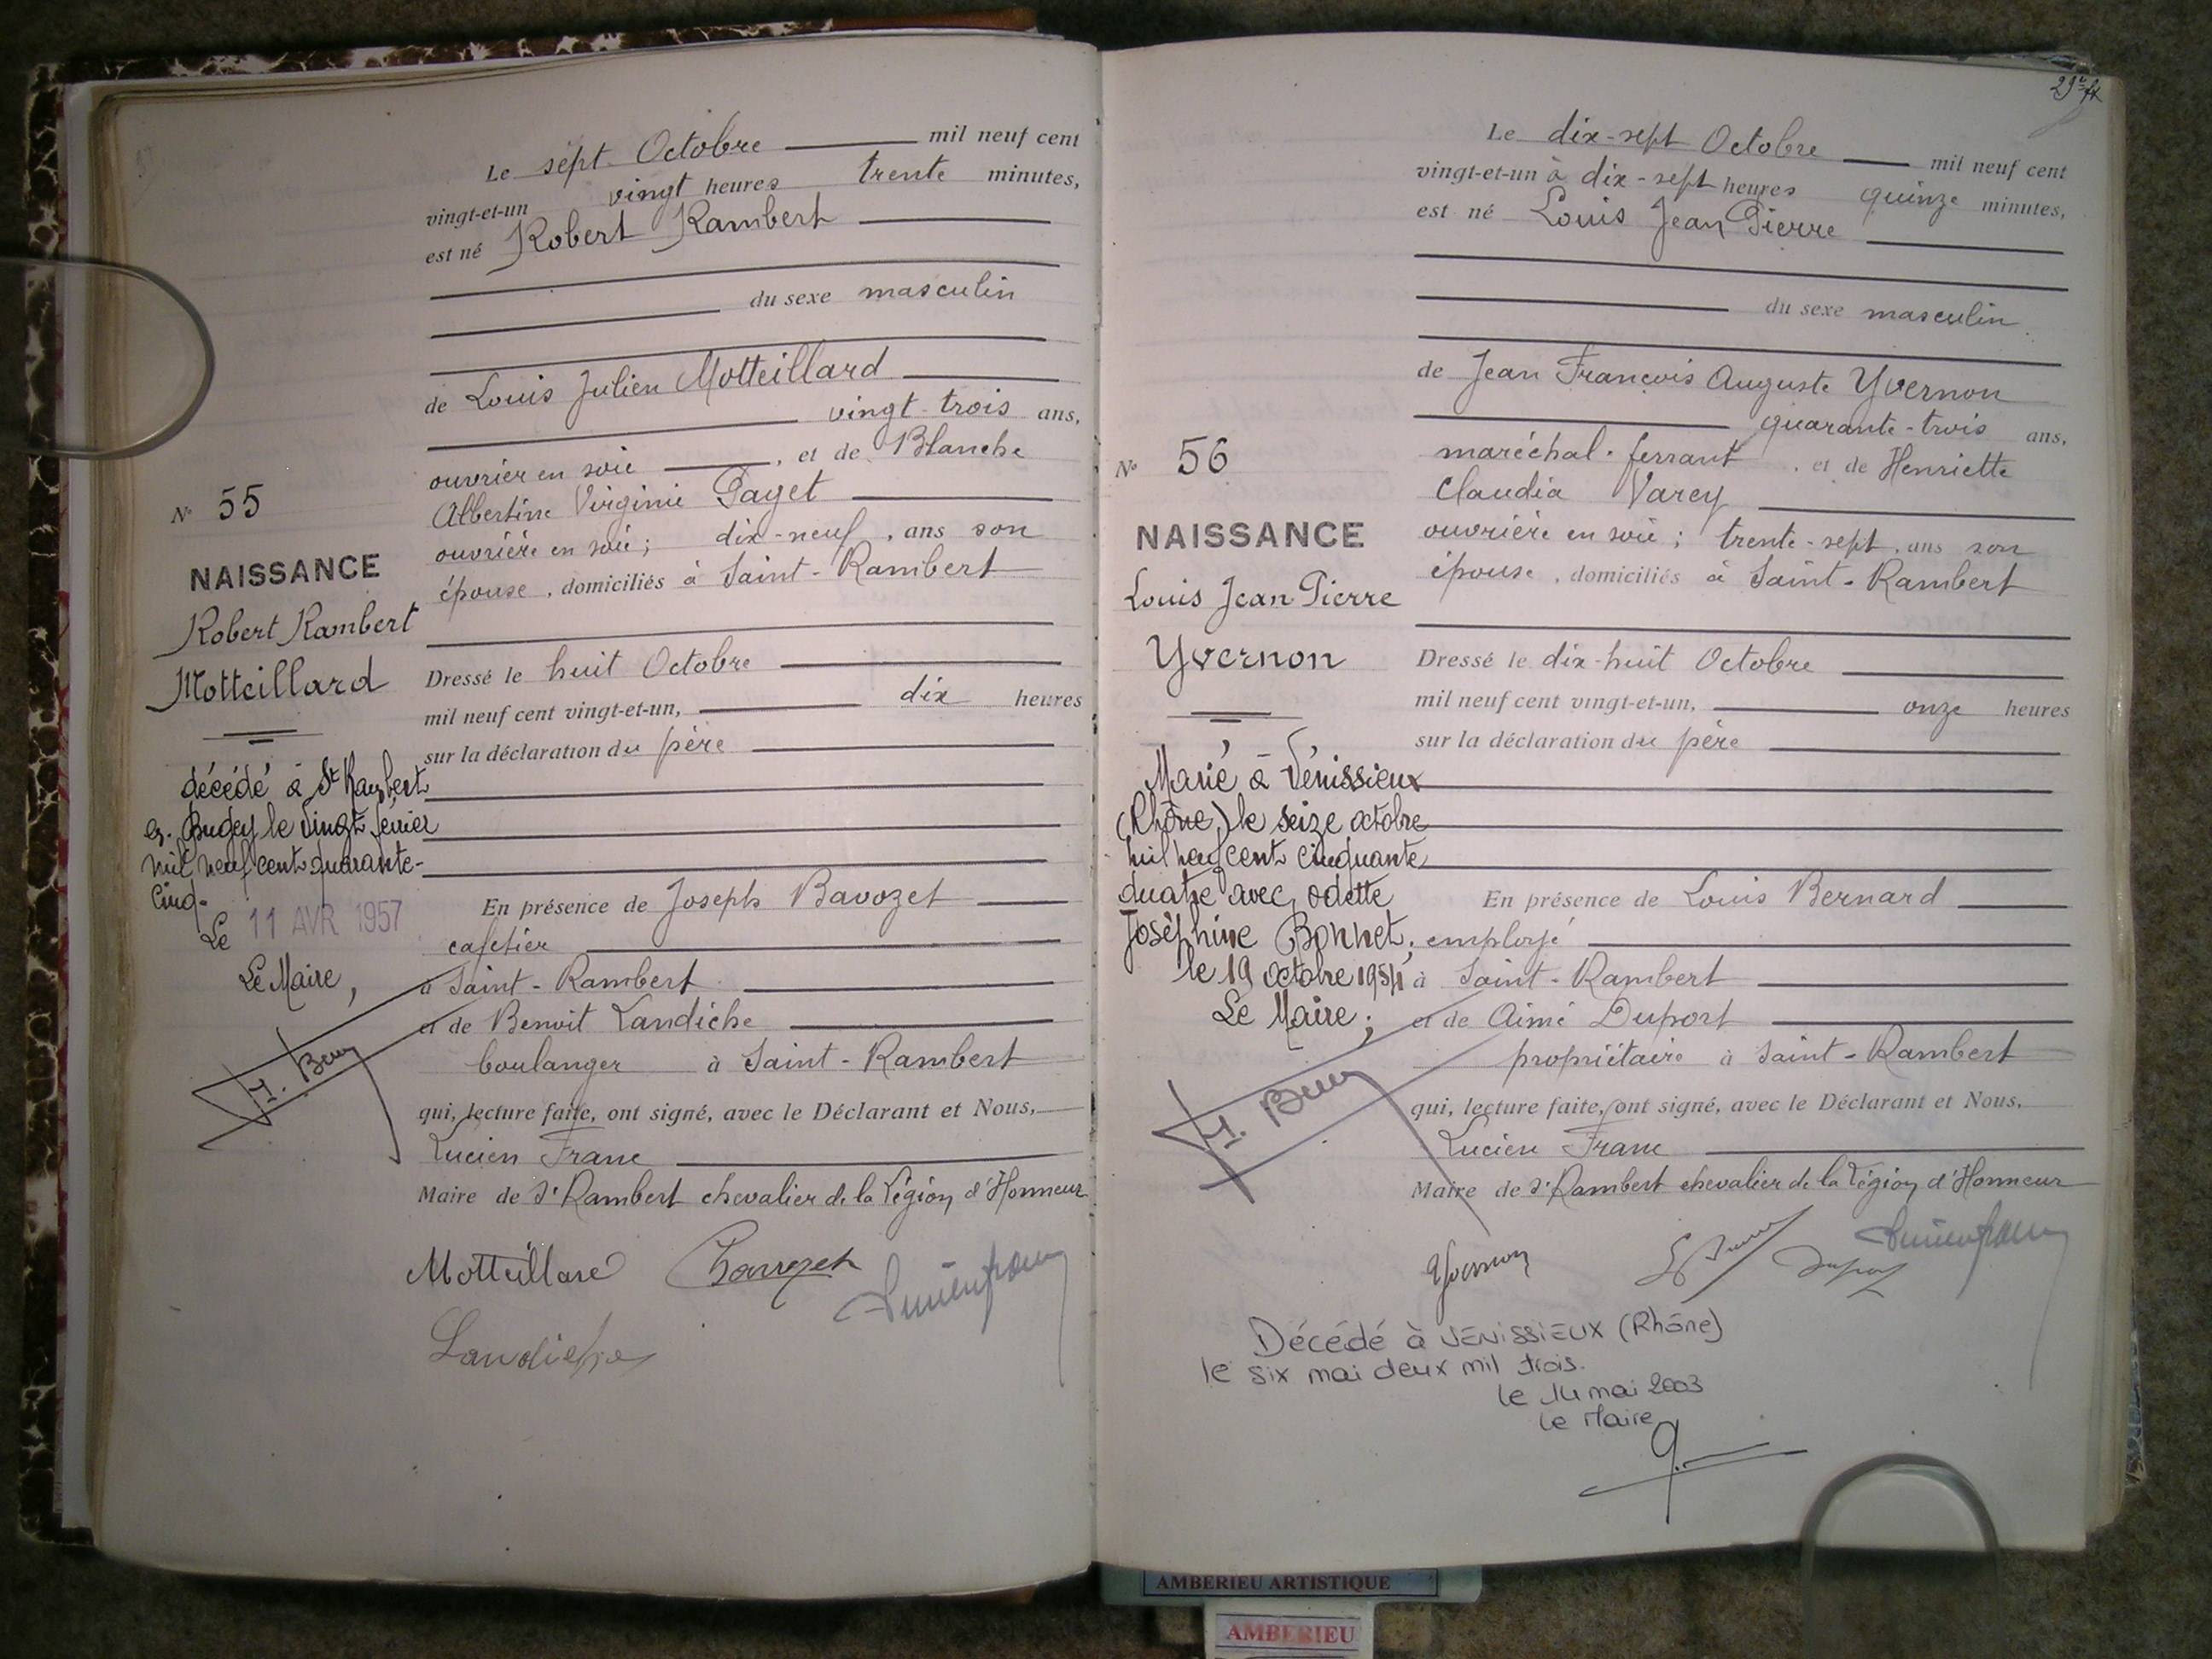 Le sept Octobre mil neuf cent
vingt-et-un vingt heures trente minutes,
est né Robert Rambert
du sexe masculin
de Louis Julien Motteillard
vingt-trois ans,
ouvrier en soie, et de Blanche
Albertine Virginie Paget
ouvrière en soie; dix-neuf, ans son
épouse, domiciliés à Saint-Rambert
N° 55
NAISSANCE
Robert Rambert
Motteillard
Dressé le huit Octobre
mil neuf cent vingt-et-un, dix heures
sur la déclaration du père
décédé à St Rambert
en Bugey le vingt février
mil neuf cent quarante-
cinq.
Le 11 AVR 1957
Le Maire,
H. Beny
En présence de Joseph Bavozet
cafetier
à Saint-Rambert
et de Benoit Landiche
boulanger à Saint-Rambert
qui, lecture faite, ont signé, avec le Déclarant et Nous,
Lucien Franc
Maire de St Rambert chevalier de la Légion d'Honneur
Motteillard Bavozet Lucien Franc
Landiche
29e ft
Le dix-sept Octobre mil neuf cent
vingt-et-un à dix-sept heures quinze minutes,
est né Louis Jean Pierre
du sexe masculin
de Jean François Auguste Yvernon
quarante-trois ans,
maréchal-ferrant, et de Henriette
Claudia Varey
ouvrière en soie; trente-sept, ans son
épouse, domiciliés à Saint-Rambert
N° 56
NAISSANCE
Louis Jean Pierre
Yvernon
Dressé le dix-huit Octobre
mil neuf cent vingt-et-un, onze heures
sur la déclaration du père
Marié à Vénissieux
(Rhône) le seize octobre
mil neuf cent cinquante
quatre avec odette
Joséphine Bonnet.
le 19 octobre 1954
Le Maire;
H. Beny
En présence de Louis Bernard
employé
à Saint-Rambert
et de Aimé Duport
propriétaire à Saint-Rambert
qui, lecture faite, ont signé, avec le Déclarant et Nous,
Lucien Franc
Maire de St Rambert chevalier de la Légion d'Honneur
Yvernon Duport Lucien Franc
Décédé à VENISSIEUX (Rhône)
le six mai deux mil trois.
le 14 mai 2003
le Maire
AMBERIEU ARTISTIQUE
AMBERIEU